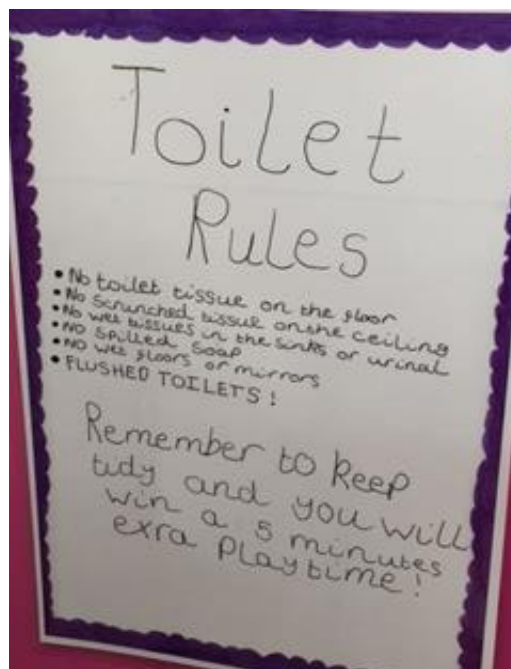 Toilet
Rules
• No toilet tissue on the floor
• No scrunched tissue on the ceiling
• No wet tissues in the sinks or urinal
• NO spilled soap
• NO wet floors or mirrors
• FLUSHED TOILETS !
Remember to keep
tidy and you will
win a 5 minutes
exra playtime!